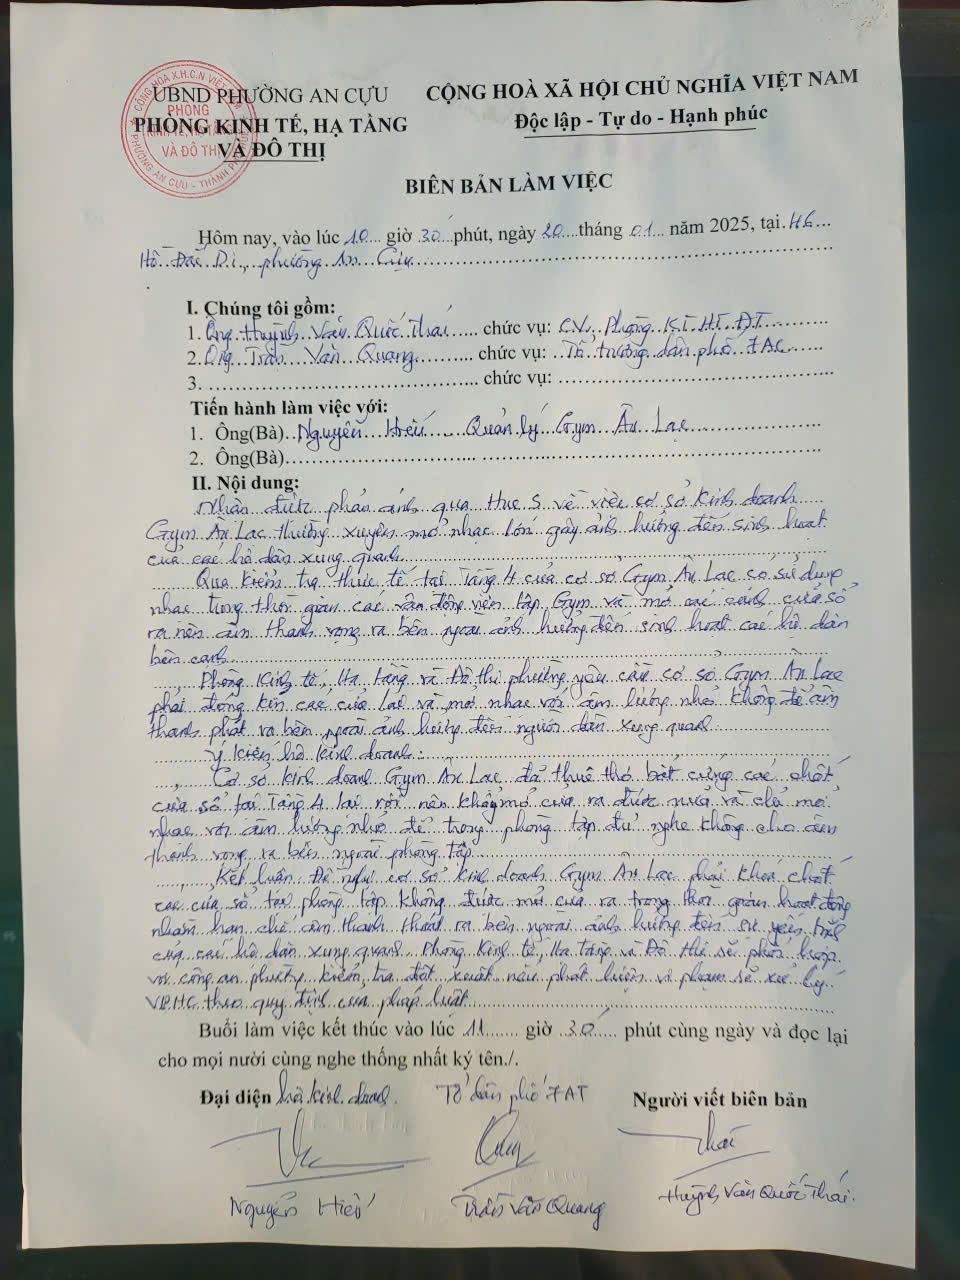 CỘNG HOÀ X.H.C.N VIỆT NAM
PHÒNG
KINH TẾ, HẠ TẦNG
VÀ ĐÔ THỊ
PHƯỜNG AN CỰU - THÀNH PHỐ HUẾ
UBND PHƯỜNG AN CỰU
PHÒNG KINH TẾ, HẠ TẦNG
VÀ ĐÔ THỊ
CỘNG HOÀ XÃ HỘI CHỦ NGHĨA VIỆT NAM
Độc lập - Tự do - Hạnh phúc
BIÊN BẢN LÀM VIỆC
Hôm nay, vào lúc 10 giờ 30 phút, ngày 20 tháng 01 năm 2025, tại H6
Hồ Đắc Di, phường An Cựu
I. Chúng tôi gồm:
1. Ông Huỳnh Văn Quốc Thái chức vụ: CV. Phòng KT, HT, ĐT
2. Ông Trần Văn Quang chức vụ: Tổ trưởng dân phố 7AC
3. chức vụ:
Tiến hành làm việc với:
1. Ông(Bà) Nguyễn Hiếu Quản lý Gym Ân Lạc
2. Ông(Bà)
II. Nội dung:
Nhận được phản ánh qua Hue S về việc cơ sở kinh doanh
Gym Ân Lạc thường xuyên mở nhạc lớn gây ảnh hưởng đến sinh hoạt
của các hộ dân xung quanh.
Qua kiểm tra thực tế tại Tầng 4 của cơ sở Gym Ân Lạc có sử dụng
nhạc trong thời gian các vận động viên tập Gym và mở các cánh cửa sổ
ra nên âm thanh vọng ra bên ngoài ảnh hưởng đến sinh hoạt các hộ dân
bên cạnh.
Phòng Kinh tế, Hạ tầng và Đô thị phường yêu cầu cơ sở Gym Ân Lạc
phải đóng kín các cửa lại và mở nhạc với âm lượng nhỏ không để âm
thanh phát ra bên ngoài ảnh hưởng đến người dân xung quanh.
Ý kiến hộ kinh doanh:
Cơ sở kinh doanh Gym Ân Lạc đã thuê thợ bắt cứng các chốt
cửa sổ tại Tầng 4 lại rồi nên không mở cửa ra được nữa và chỉ mở
nhạc với âm lượng nhỏ để trong phòng tập đủ nghe không cho âm
thanh vọng ra bên ngoài phòng tập.
Kết luận: Đề nghị cơ sở kinh doanh Gym Ân Lạc phải khóa chốt
các cửa sổ tại phòng tập không được mở cửa ra trong thời gian hoạt động
nhằm hạn chế âm thanh thoát ra bên ngoài ảnh hưởng đến sự yên tĩnh
của các hộ dân xung quanh. Phòng Kinh tế, Hạ tầng và Đô thị sẽ phối hợp
với công an phường kiểm tra đột xuất nếu phát hiện vi phạm sẽ xử lý
VPHC theo quy định của pháp luật.
Buổi làm việc kết thúc vào lúc 11 giờ 30 phút cùng ngày và đọc lại
cho mọi nười cùng nghe thống nhất ký tên./.
Đại diện hộ kinh doanh. Tổ dân phố 7AT Người viết biên bản
Thái
Nguyễn Hiếu Trần Văn Quang Huỳnh Văn Quốc Thái.